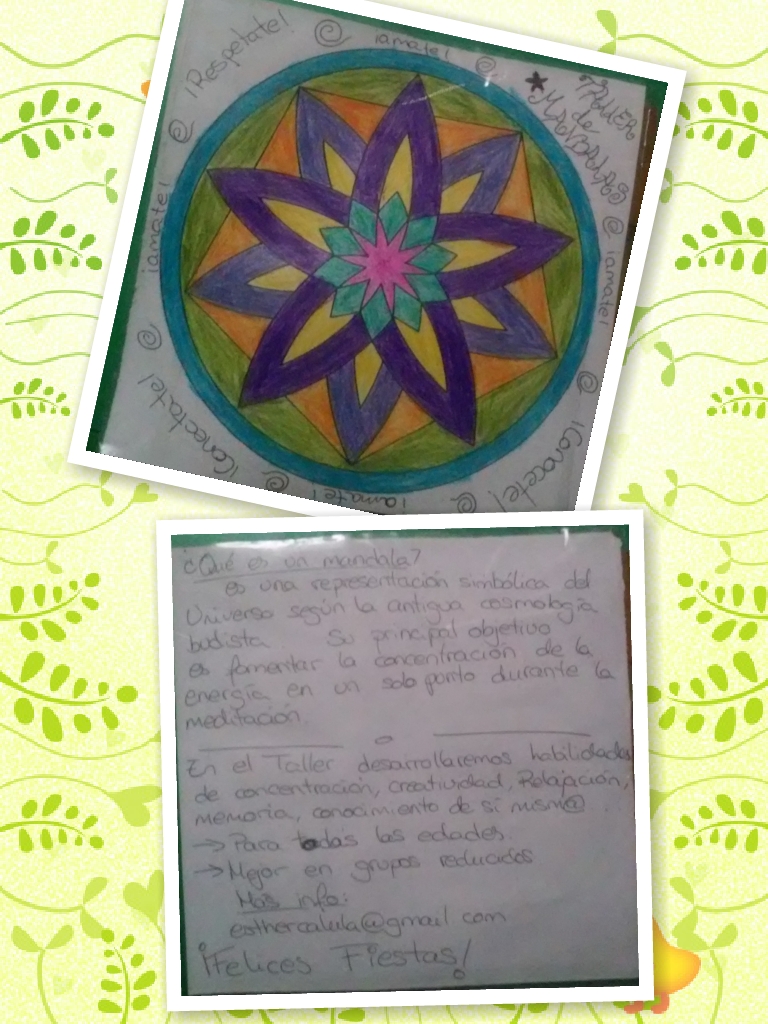 ★ TALLER
de
MANDALAS
¡Respetate!
¡amate!
¡amate!
¡Conocete!
¡amate!
¡Conectate!
¡amate!
¿Qué es un mandala?
es una representación simbólica del
Universo según la antigua cosmología
budista. Su principal objetivo
es fomentar la concentración de la
energía en un solo punto durante la
meditación.
En el Taller desarrollaremos habilidades
de concentración, creatividad, Relajación,
memoria, conocimiento de sí mism@.
→ Para todas las edades.
→ Mejor en grupos reducidos
Mas info:
esthercalula@gmail.com
¡Felices Fiestas!